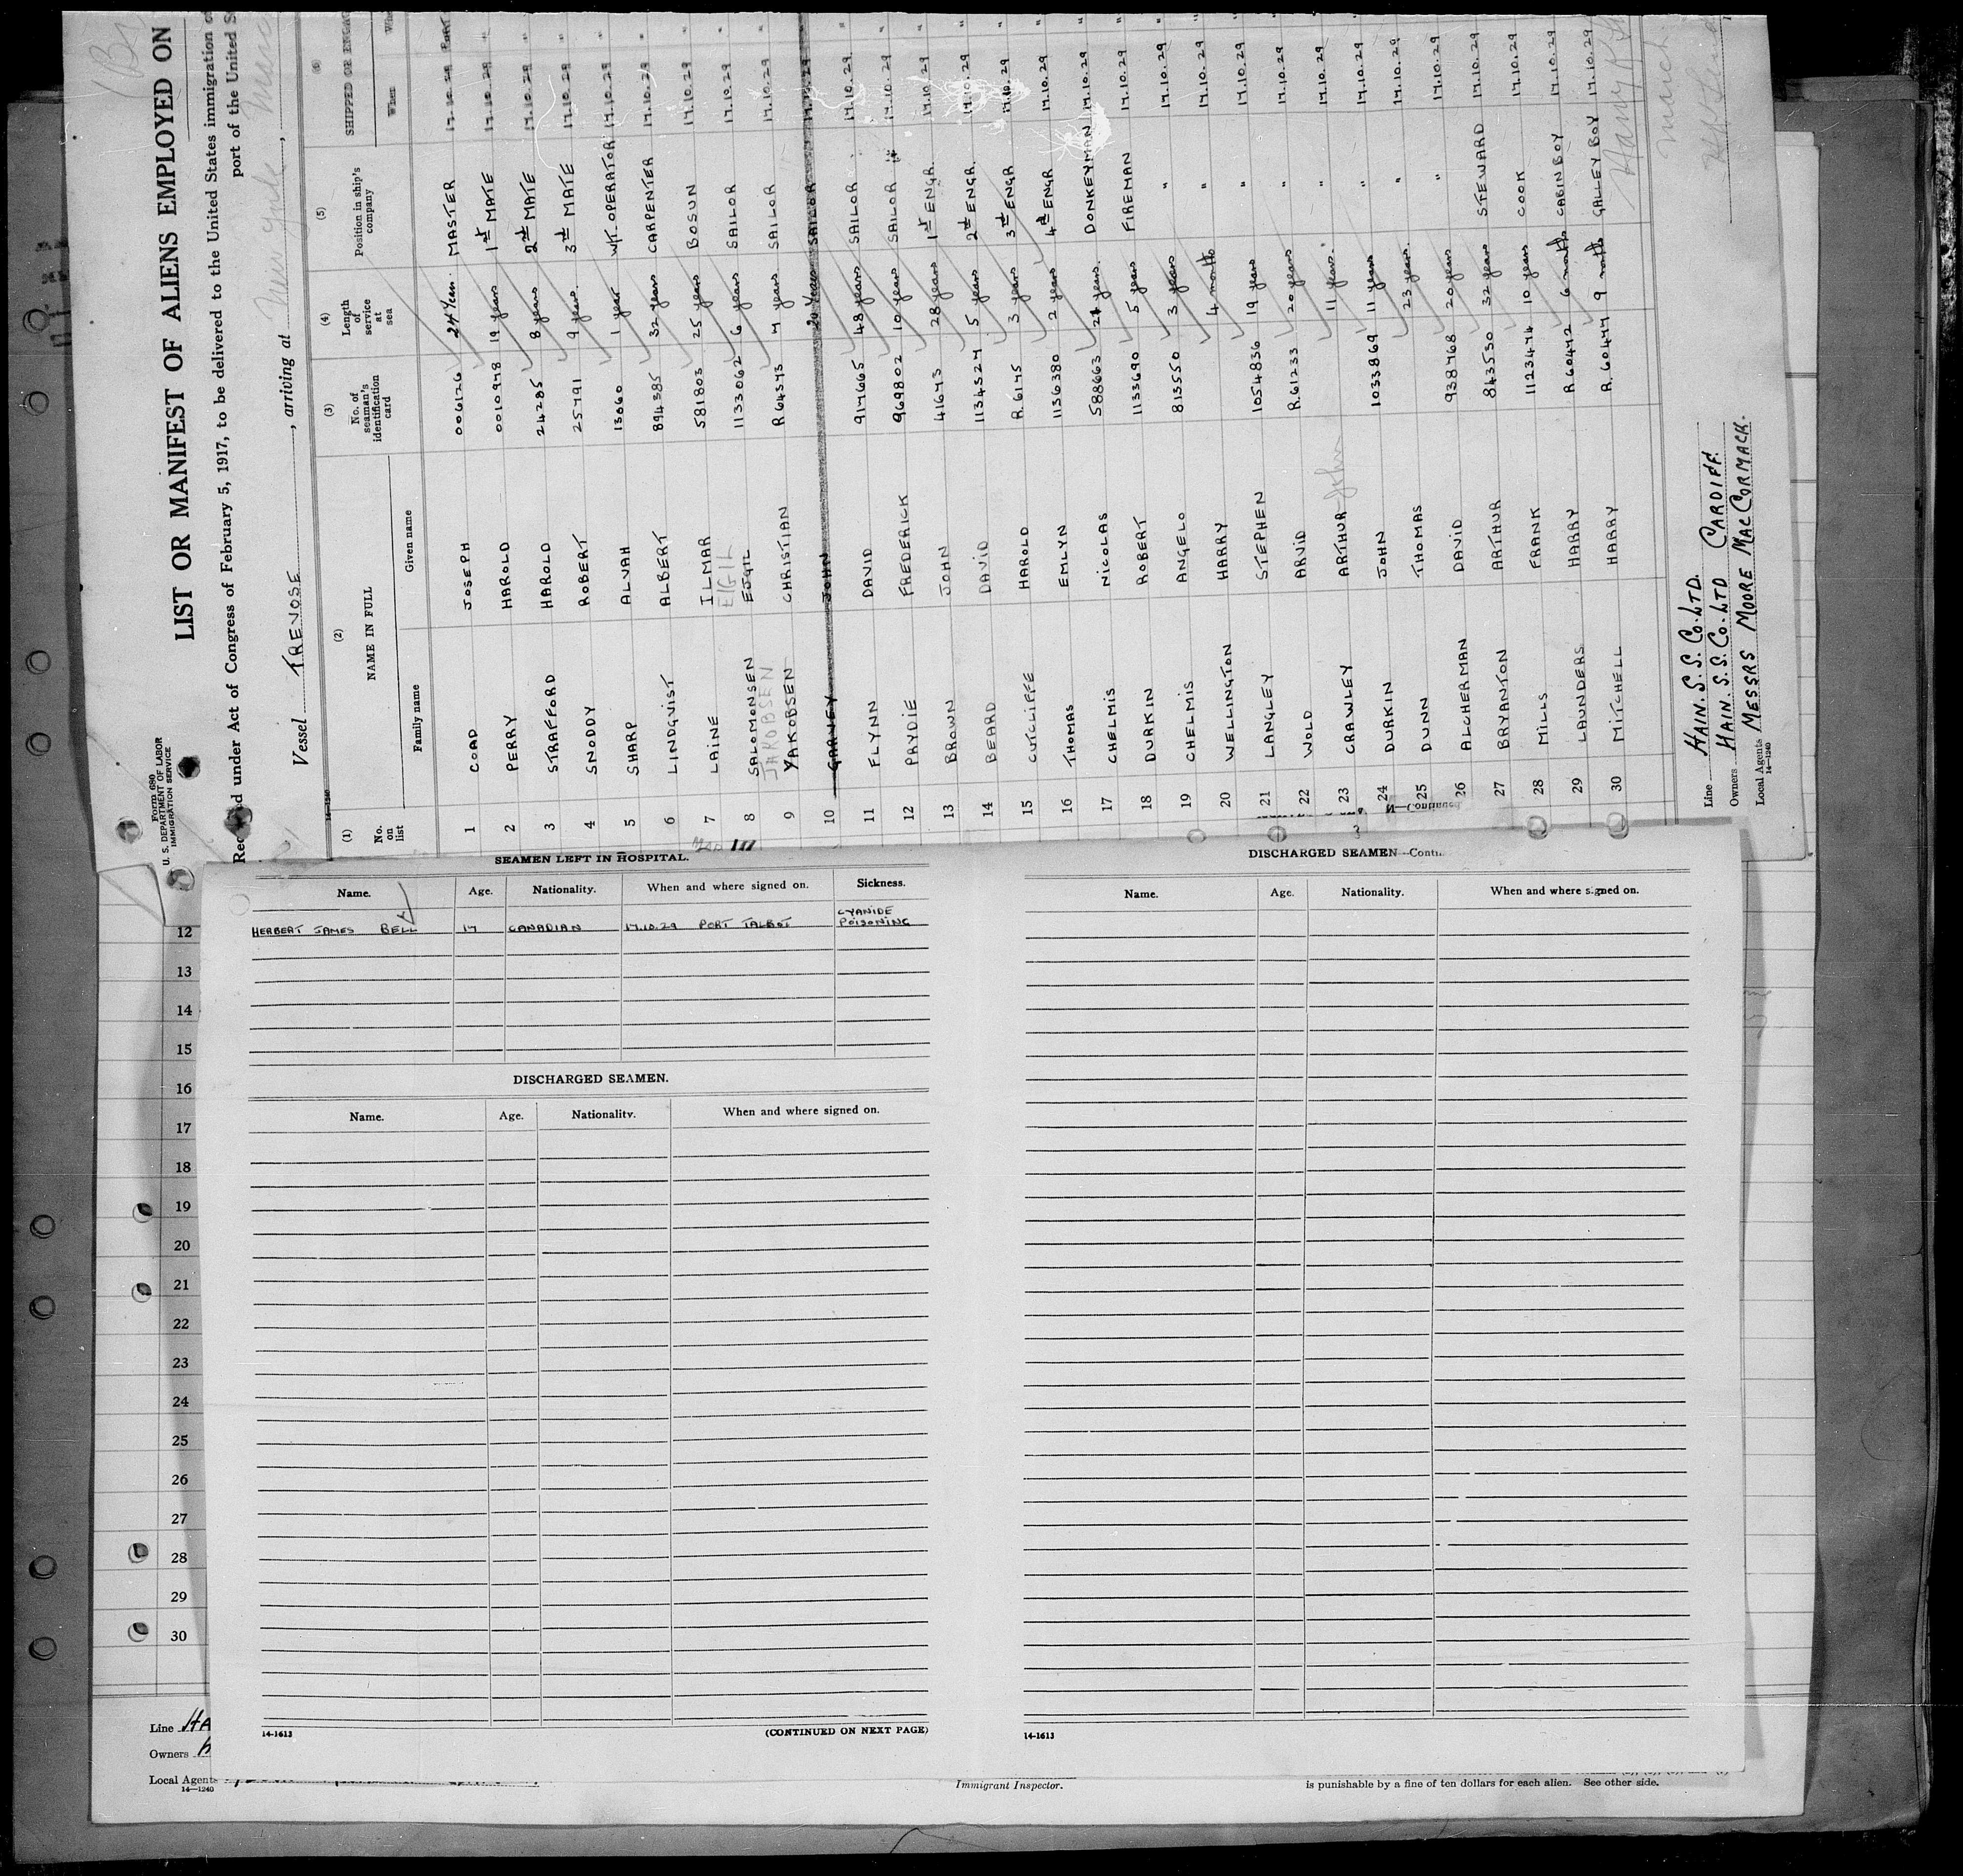 Form 680
U. S. DEPARTMENT OF LABOR
IMMIGRATION SERVICE
LIST OR MANIFEST OF ALIENS EMPLOYED ON
under Act of Congress of February 5, 1917, to be delivered to the United States immigration
port of the United
Vessel TREVOSE, arriving at New York,
(1) (2) (3) (4) (5) (6)
No. on list NAME IN FULL No. of seaman's identification card Length of service at sea Position in ship's company SHIPPED OR
Family name Given name When
1 COAD JOSEPH 006126 24 Years MASTER 17.10.29
2 PERRY HAROLD 0010978 19 years 1st MATE 17.10.29 "
3 STRAFFORD HAROLD 24285 8 years 2nd MATE 17.10.29 "
4 SNODDY ROBERT 25791 9 years 3rd MATE 17.10.29 "
5 SHARP ALVAH 13060 1 year W/T. OPERATOR 17.10.29 "
6 LINDQVIST ALBERT 894385 32 years CARPENTER 17.10.29 "
7 LAINE ILMAR 581803 25 years BOSUN 17.10.29 "
EIGIL
8 SALOMONSEN EJGIL 1133062 6 years SAILOR 17.10.29 "
JAKOBSEN
9 YAKOBSEN CHRISTIAN R.64573 7 years SAILOR 17.10.29 "
10 GARVEY JOHN 20 Years SAILOR 17.10.29 "
11 FLYNN DAVID 917665 48 years SAILOR 17.10.29 "
12 PRYDIE FREDERICK 969802 10 years SAILOR 17.10.29 "
13 BROWN JOHN 41673 28 years 1st ENGR. 17.10.29 "
14 BEARD DAVID 1134527 5 years 2nd ENGR. 17.10.29 "
15 CUTCLIFFE HAROLD R.6175 3 years 3rd ENGR 17.10.29 "
16 THOMAS EMLYN 1136380 2 years 4th ENGR 17.10.29 "
17 CHELMIS NICOLAS 588663 27 years DONKEYMAN 17.10.29 "
18 DURKIN ROBERT 113690 5 years FIREMAN 17.10.29 "
19 CHELMIS ANGELO 813550 3 years " 17.10.29 "
20 WELLINGTON HARRY 4 months " 17.10.29 "
21 LANGLEY STEPHEN 1054836 19 years " 17.10.29 "
22 WOLD ARVID R.61233 20 years " 17.10.29 "
23 CRAWLEY ARTHUR John 11 years " 17.10.29 "
24 DURKIN JOHN 1033869 11 years " 17.10.29 "
25 DUNN THOMAS 23 years " 17.10.29 "
26 ALCHERMAN DAVID 938768 20 years " 17.10.29 "
27 BRYANTON ARTHUR 843530 32 years STEWARD 17.10.29 "
28 MILLS FRANK 1123474 10 years COOK 17.10.29 "
29 LAUNDERS HARRY R.60472 6 months CABIN BOY 17.10.29 "
30 MITCHELL HARRY R.60477 9 months GALLEY BOY 17.10.29 "
Line HAIN. S. S. Co. LTD.
Owners HAIN. S. S. Co. LTD CARDIFF.
Local Agents MESSRS MOORE MACCORMACK.
14-1240
SEAMEN LEFT IN HOSPITAL.
Name. Age. Nationality. When and where signed on. Sickness.
HERBERT JAMES BELL 17 CANADIAN 17.10.29 PORT TALBOT CYANIDE POISONING
DISCHARGED SEAMEN.
Name. Age. Nationality. When and where signed on.
14-1613
(CONTINUED ON NEXT PAGE)
DISCHARGED SEAMEN—Contin.
Name. Age. Nationality. When and where signed on.
14-1613
12
13
14
15
16
17
18
19
20
21
22
23
24
25
26
27
28
29
30
Line HA
Owners H
Local Agents
14-1240
Immigrant Inspector.
is punishable by a fine of ten dollars for each alien. See other side.